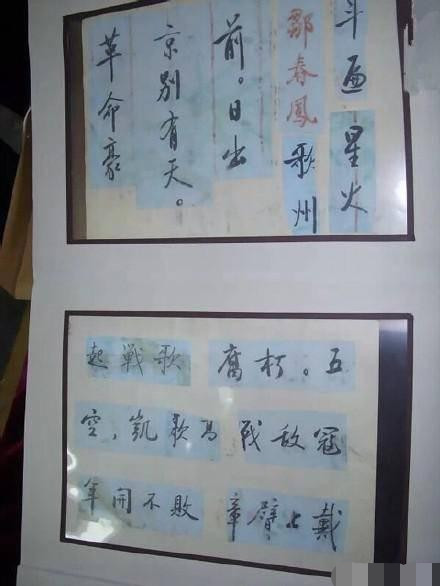 斗遍星火
鄒春鳳歌州
前。日出
京别有天。
革命豪
起戰歌 腐朽。五
空，凯歌高 战敌冠
年開不敗 章臂上戴